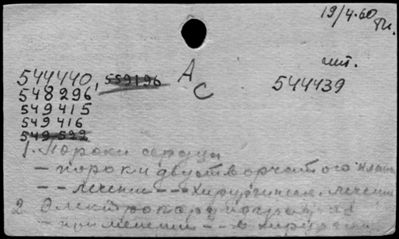 19/4-60
544440, 559196
А
С
лит.
544439
548296
549415
549416
549522
1. Пороки сердца
– пороки двустворчатого клапана
– – лечение – – хирургическое лечение
2. Электрокардиография
– применение – в хирургии